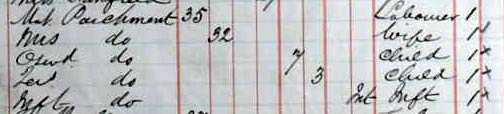 Mr Parchment 35 Labourer 1
Mrs do 32 Wife 1
Oswd do 7 child 1
Les do 3 child 1
Inft do Int Inft 1